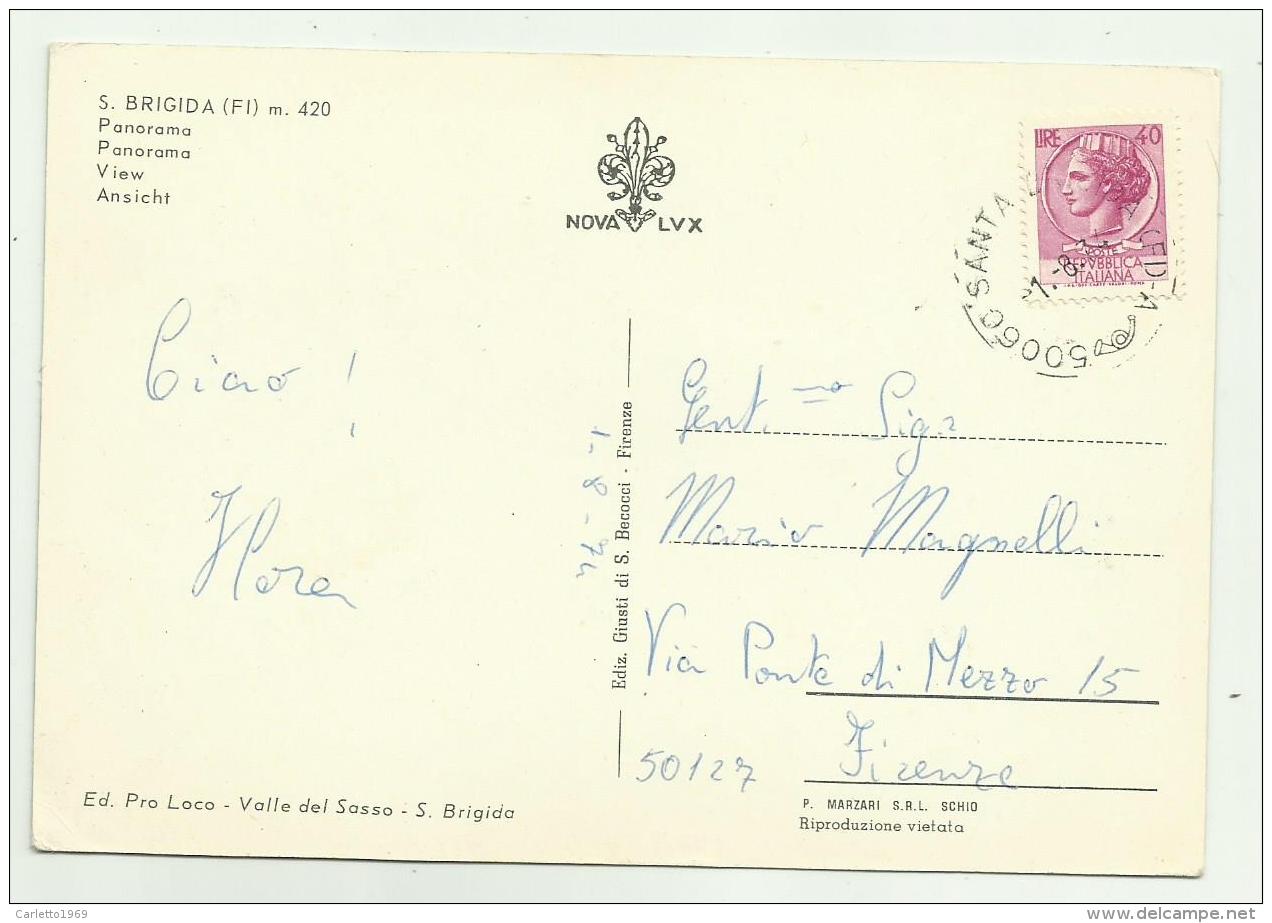 S. BRIGIDA (FI) m. 420
Panorama
Panorama
View
Ansicht
NOVA LVX
LIRE 40
POSTE
REPVBBLICA
ITALIANA
50060 SANTA (FI) - A
1.-8.
Ciao !
1-8-74
Ediz. Giusti di S. Becocci - Firenze
Gent.mo Sigr
Mario Magnelli
Via Ponte di Mezzo 15
50127 Firenze
Ed. Pro Loco - Valle del Sasso - S. Brigida
P. MARZARI S.R.L. SCHIO
Riproduzione vietata
Carletto1969
www.delcampe.net